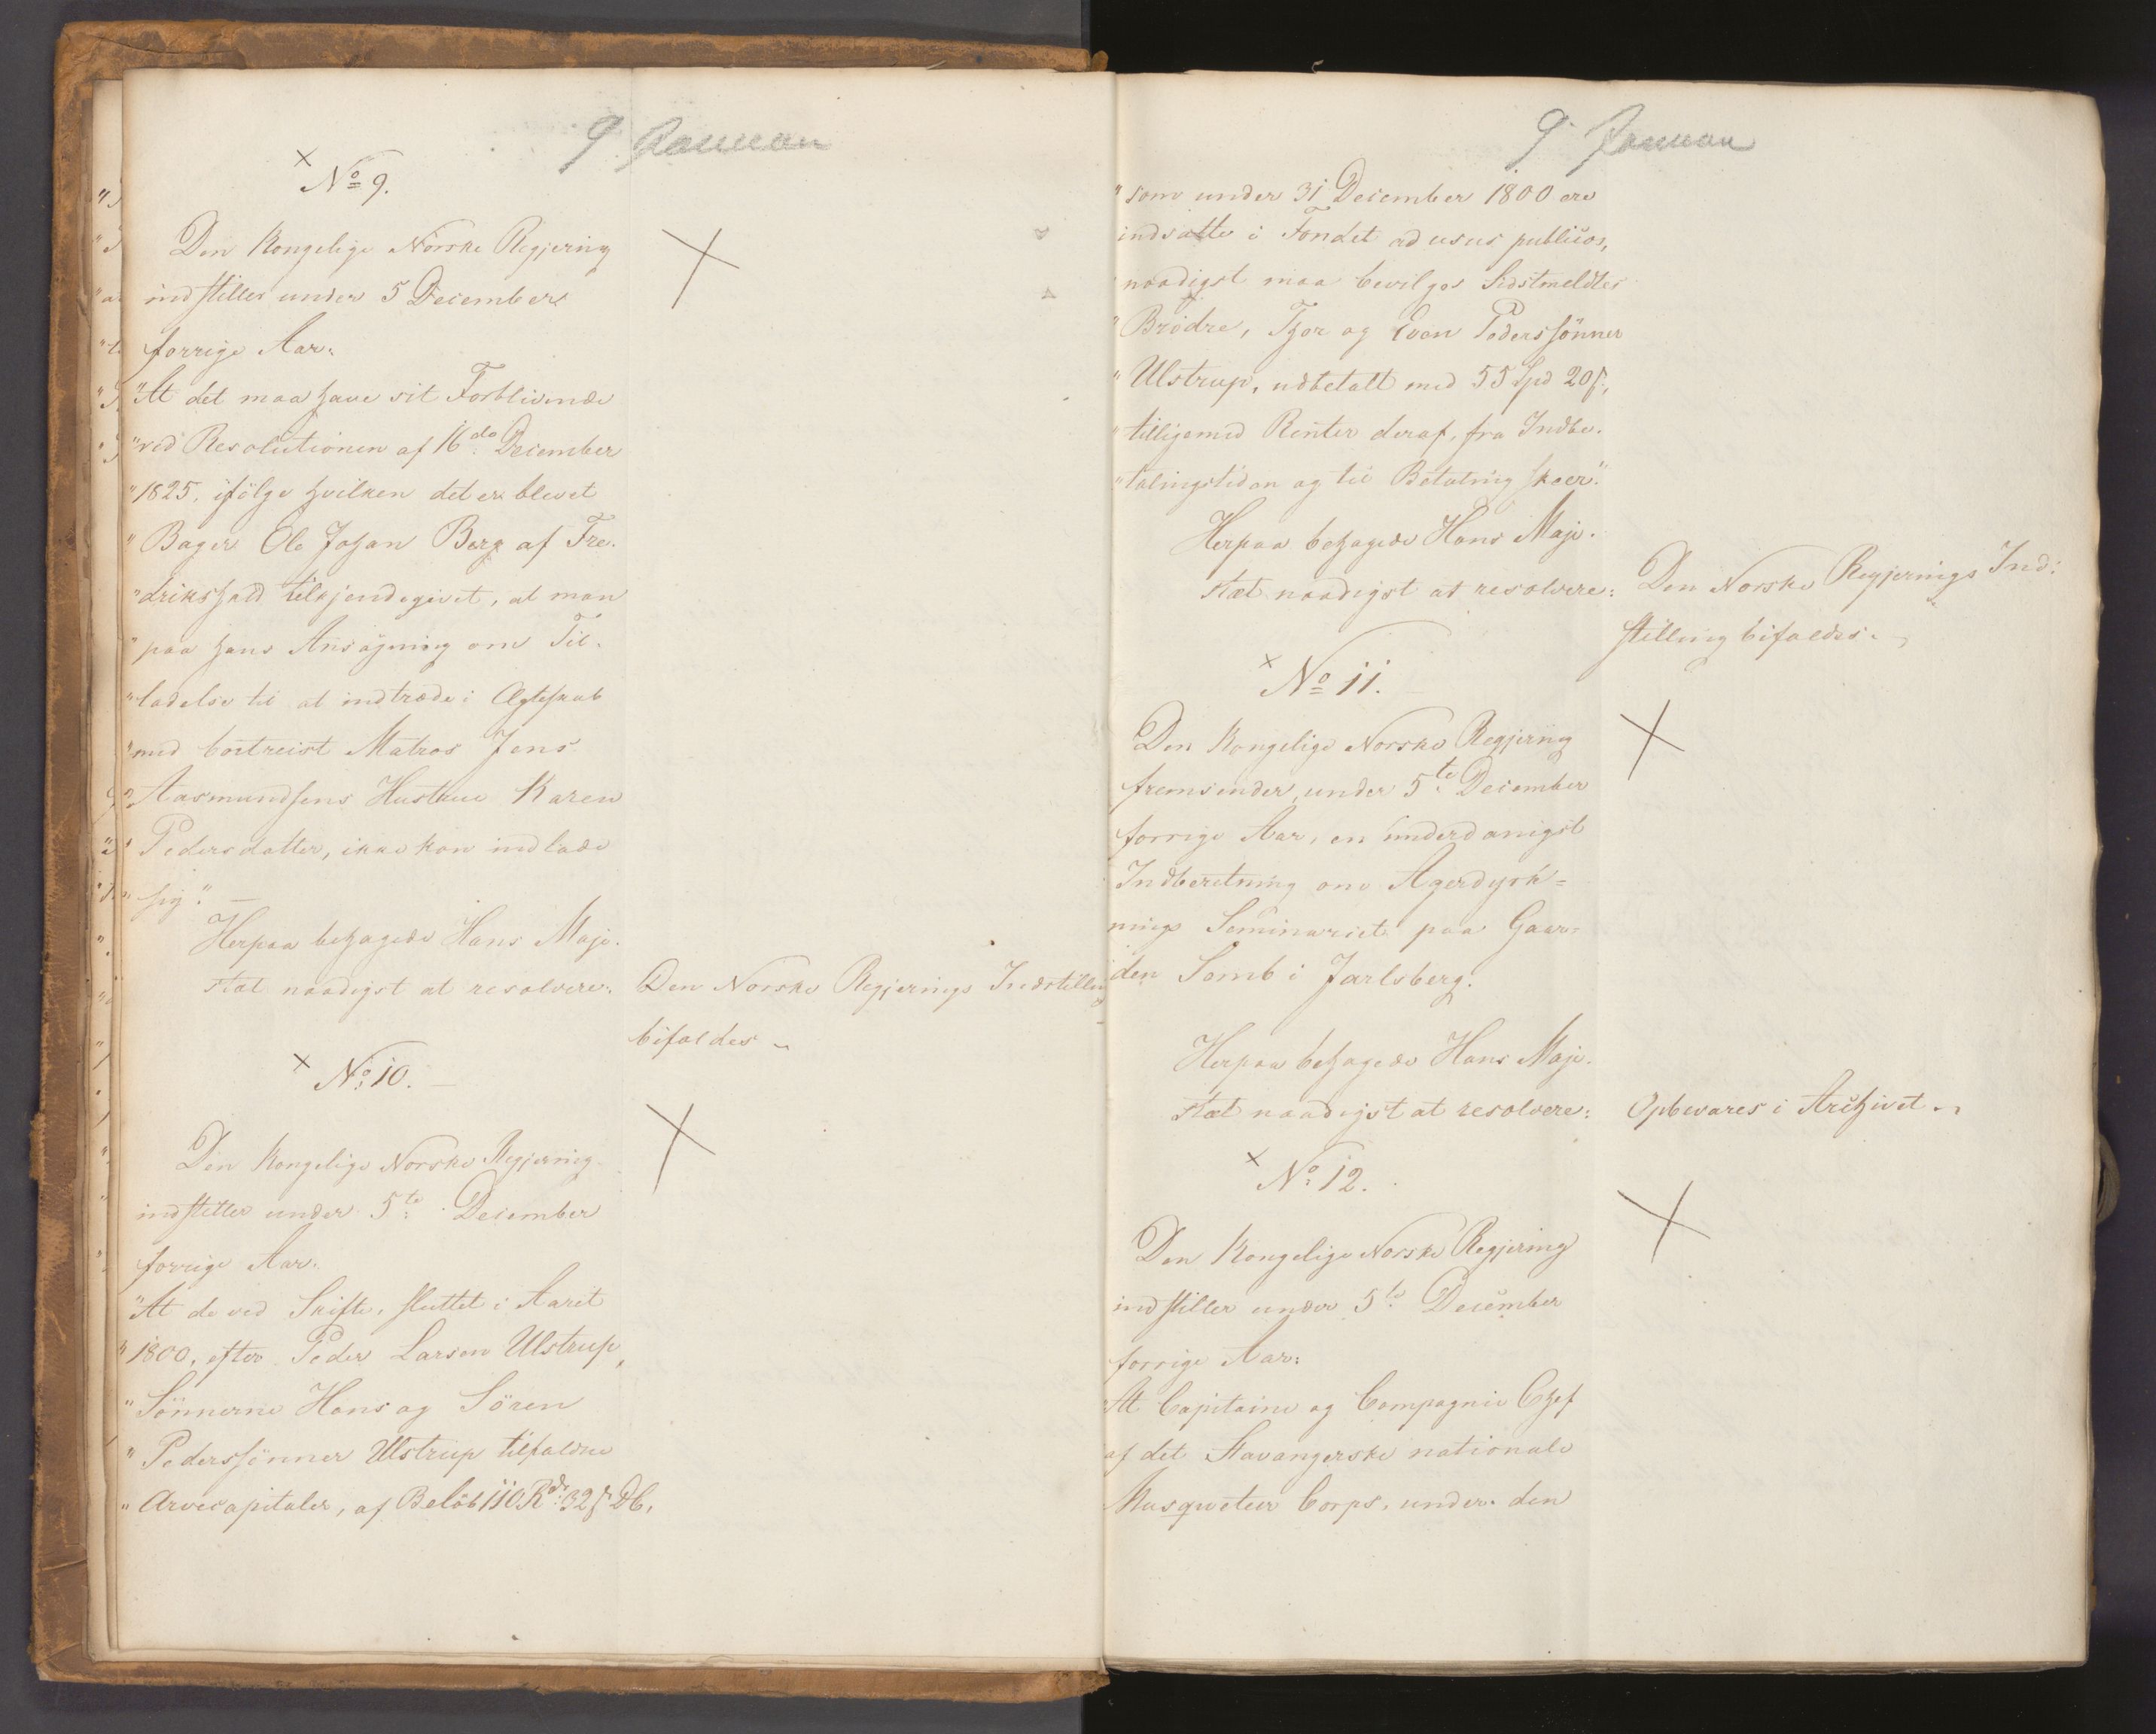 9 Januar
× No 9.
Den Kongelige Norske Regjering
indstiller under 5 December
forrige Aar:
"At det maa have sit Forblivende
"ved Resolutionen af 16de December
"1825, ifölge hvilken det er blevet
"Bager Ole Johan Berg af Fre-
"drikshald tilkjendegivet, at man
"paa hans Ansögning om Til-
"ladelse til at indtræde i Ægteskab
"med bortreist Matros Jens
"Aasmundsens Hustrue Karen
"Pedersdatter, ikke kan indlade
"sig". —
Herpaa behagede Hans Maje-
stæt naadigst at resolvere:
Den Norske Regjerings Indstilling
bifaldes
× No 10. —
Den Kongelige Norske Regjering
indstiller under 5te December
forrige Aar:
"At de ved Skifte, sluttet i Aaret
"1800, efter Peder Larsen Ulstrup,
"Sönnerne Hans og Sören
"Pederssönner Ulstrup tilfaldne
"Arvecapitaler, af Belöb 110 Rd 32 s Db,
9 Januar
"som under 31 December 1800 ere
indsatte i Fondet ad usus publicos,
naadigst maa bevilges Sidstmeldtes
"Brödre, Thor og Even Pederssönner
"Ulstrup, udbetalt med 55 Spd 20 s,
"tilligemed Renter deraf, fra Indbe-
"talingstiden og til Betaling skeer."
Herpaa behagede Hans Maje-
stæt naadigst at resolvere:
Den Norske Regjerings Ind-
stilling bifaldes.
× No 11.
Den Kongelige Norske Regjering
fremsender, under 5te December
forrige Aar, en underdanigst
Indberetning om Agerdyrk=
nings Seminariet paa Gaar=
den Semb i Jarlsberg.
Herpaa behagede Hans Maje-
stæt naadigst at resolvere:
Opbevares i Archivet
× No 12.
Den Kongelige Norske Regjering
indstiller under 5te December
forrige Aar:
At Capitaine og Compagnie Chef
af det Stavangerske nationale
Musqueteer Corps, under den